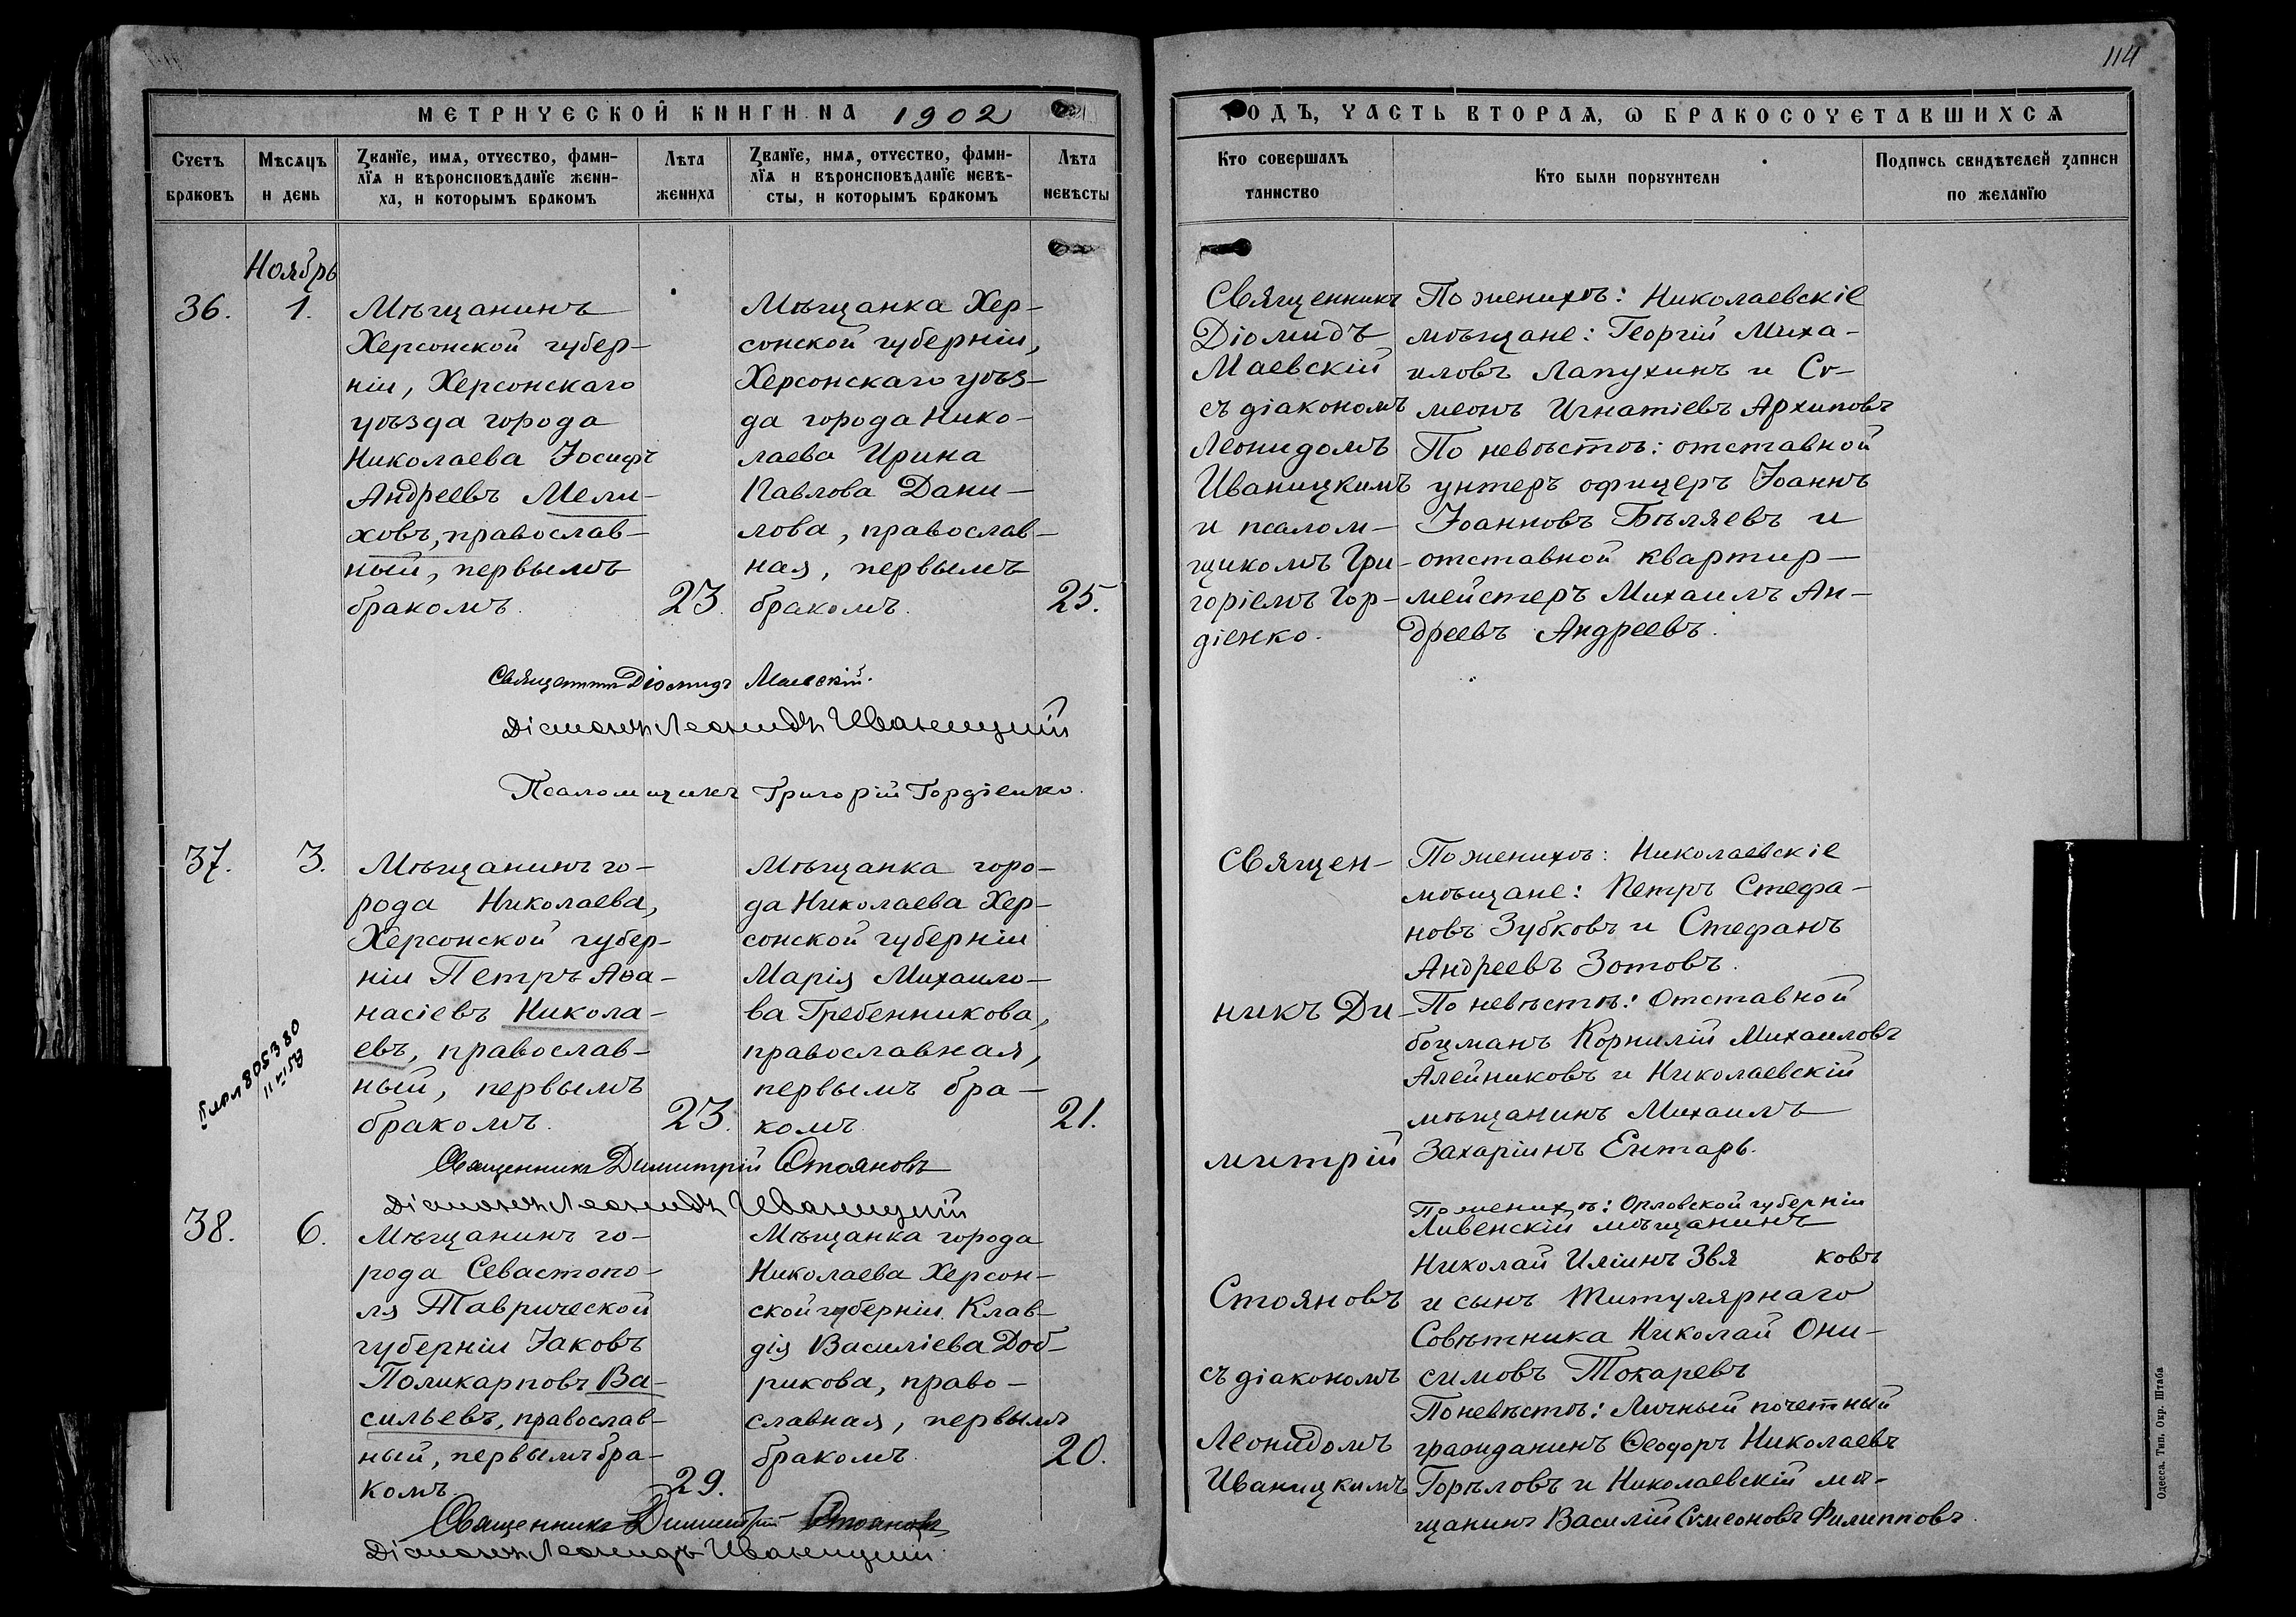 114
МЕТРИЧЕСКОЙ КНИГИ НА 1902
Счетъ браковъ
Мѣсяцъ и день
Званїе, имя, отчество, фами-
лїя и вѣроисповѣданїе жени-
ха, и которымъ бракомъ
Лѣта жениха
Званїе, имя, отчество, фами-
лїя и вѣроисповѣданїе невѣ-
сты, и которымъ бракомъ
Лѣта невѣсты
ГОДЪ, ЧАСТЬ ВТОРАЯ, Ѡ БРАКОСОЧЕТАВШИХСЯ
Кто совершалъ
таинство
Кто были порꙋчители
Подпись свидѣтелей записи
по желанїю
Ноябрь
36.
1.
Мѣщанинъ
Херсонской губер-
ніи, Херсонскаго
уѣзда города
Николаева Іосифъ
Андреевъ Мели-
ховъ, православ-
ный, первымъ
бракомъ.
23.
Мѣщанка Хер-
сонской губерніи,
Херсонскаго уѣз-
да города Нико-
лаева Ирина
Павлова Дани-
лова, православ-
ная, первымъ
бракомъ.
25.
Священникъ
Діомидъ
Маевскій
съ діакономъ
Леонидомъ
Иваницкимъ
и псалом-
щикомъ Гри-
горіемъ Гор-
діенко.
По женихѣ: Николаевскіе
мѣщане: Георгій Миха-
иловъ Лапухинъ и Сѵ-
меонъ Игнатіевъ Архиповъ
По невѣстѣ: отставной
унтеръ офицеръ Іоаннъ
Іоанновъ Бѣляевъ и
отставной квартир-
мейстеръ Михаилъ Ан-
дреевъ Андреевъ.
Священникъ Діомидъ Маевскій.
Діаконъ Леонидъ Иваницкій
Псаломщикъ Григорій Гордіенко.
37.
3.
Мѣщанинъ го-
рода Николаева,
Херсонской губер-
ніи Петръ Аѳа-
насіевъ Никола-
евъ, православ-
ный, первымъ
бракомъ.
23.
Мѣщанка горо-
да Николаева Хер-
сонской губерніи
Марія Михаило-
ва Гребенникова,
православная,
первымъ бра-
комъ.
21.
Священ-
никъ Ди-
митрій
Стояновъ
съ діакономъ
Леонидомъ
Иваницкимъ
По женихѣ: Николаевскіе
мѣщане: Петръ Стефа-
новъ Зубковъ и Стефанъ
Андреевъ Зотовъ.
По невѣстѣ: Отставной
боцманъ Корнилій Михаиловъ
Алейниковъ и Николаевскій
мѣщанинъ Михаилъ
Захаріинъ Ентарь.
Священникъ Димитрій Стояновъ
Діаконъ Леонидъ Иваницкій
38.
6.
Мѣщанинъ го-
рода Севастопо-
ля Таврической
губерніи Іаковъ
Поликарповъ Ва-
сильевъ, православ-
ный, первымъ бра-
комъ.
29.
Мѣщанка города
Николаева Херсон-
ской губерніи Клав-
дія Василіева Доб-
рикова, право-
славная, первымъ
бракомъ.
20.
По женихѣ: Орловской губерніи
Ливенскій мѣщанинъ
Николай Иліинъ Звя ковъ
и сынъ Титулярнаго
Совѣтника Николай Они-
симовъ Токаревъ
По невѣстѣ: Личный почетный
гражданинъ Ѳеодоръ Николаевъ
Горѣловъ и Николаевскій мѣ-
щанинъ Василій Сѵмеоновъ Филипповъ.
Священникъ Димитрій Стояновъ
Діаконъ Леонидъ Иваницкій
Одесса. Тип. Окр. Штаба